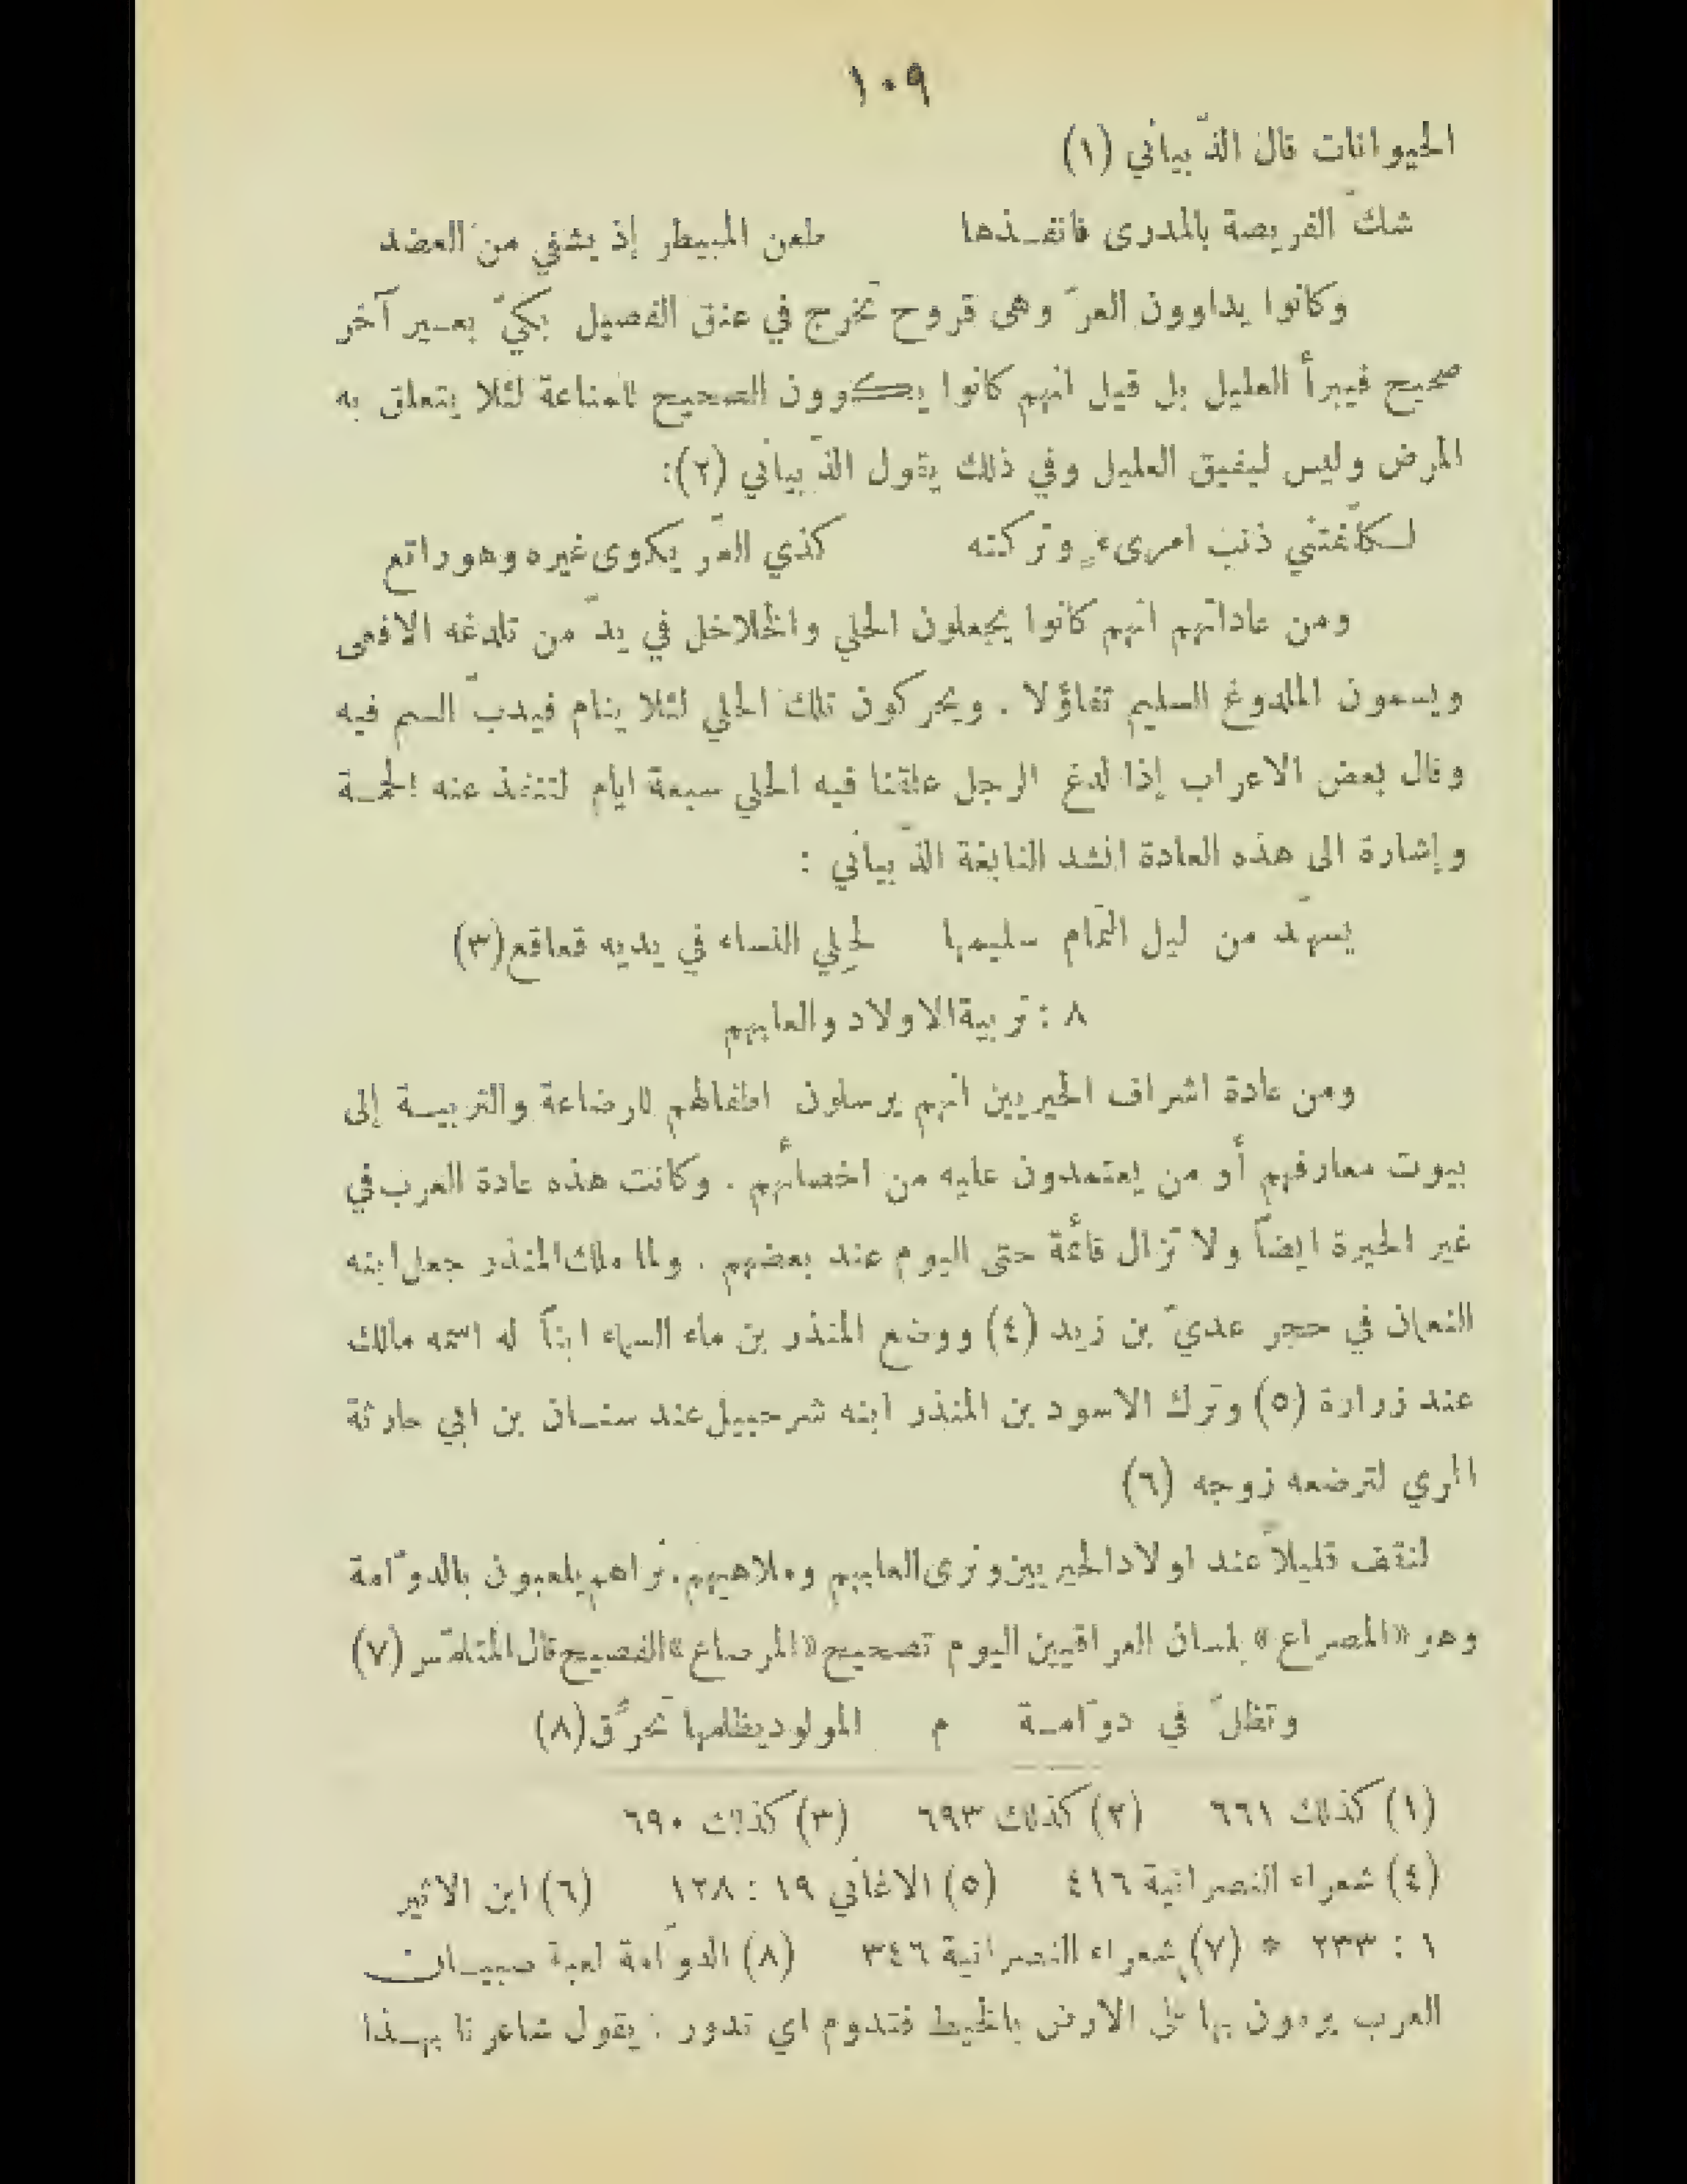 ١٠٩
الحيوانات قال الذّبياني (١)
شكّ الفريصة بالمدرى فانفـذها طعن المبيطر إذ يشفي من العضد
وكانوا يداوون العرّ وهى قروح تخرج في عنق الفصيل بكيّ بعـير آخر
صحيح فيبرأ العليل بل قيل انهم كانوا يكوون الصحيح للمناعة لئلا يتعلق به
المرض وليس ليفيق العليل وفي ذلك يقول الذّبياني (٢):
لـكلّفتني ذنب امرىءٍ وتركته كذي العّر يكوى غيره وهو راتع
ومن عاداتهم انهم كانوا يجعلون الحلي والخلاخل في يدّ من تلدغه الافعى
ويسمون الملدوغ السليم تفاؤلا . ويحركون تلك الحلي لئلا ينام فيدبّ السم فيه
وقال بعض الاعراب إذا لدغ الرجل علقنا فيه الحلي سبعة ايام لتنفذ عنه الحمـة
وإشارة الى هذه العادة انشد النابغة الذّبياني :
يسهّد من ليل التمام سليمها لحِلي النساء في يديه قعاقع(٣)
٨ : تربية الاولاد والعابهم
ومن عادة اشراف الحيريين انهم يرسلون اطفالهم للرضاعة والتربيـة إلى
بيوت معارفهم أو من يعتمدون عليه من اخصأئهم . وكانت هذه عادة العرب في
غير الحيرة ايضاً ولا تزال قائمة حتى اليوم عند بعضهم . ولما ملك المنذر جعل ابنه
النعمان في حجر عديّ بن زيد (٤) ووضع المنذر بن ماء السماء ابناً له اسمه مالك
عند زرارة (٥) وترك الاسود بن المنذر ابنه شرحبيل عند سنـان بن ابي حارثة
المري لترضعه زوجه (٦)
لنقف قليلاً عند اولاد الحيريين ونرى العابهم وملاهيهم. نراهم يلعبون بالدوّامة
وهو «المصراع» بلسان العراقيين اليوم تصحيح «المرصاع» الفصيح قال المتلمّس (٧)
وتظلّ في دوّامـة م المولود يظلمها تحرّق(٨)
(١) كذلك ٦٦١ (٢) كذلك ٦٩٣ (٣) كذلك ٦٩٠
(٤) شعراء النصرانية ٤١٦ (٥) الاغاني ١٩ : ١٢٨ (٦) ابن الاثير
١ : ٢٣٣ * (٧) شعراء النصرانية ٣٤٦ (٨) الدوّامة لعبة صبيـان
العرب يرمون بها على الارض بالخيط فتدوم اي تدور : يقول شاعرنا بهـذا